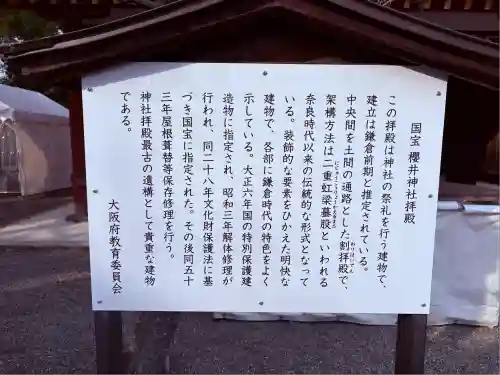 国宝 櫻井神社拝殿
この拝殿は神社の祭礼を行う建物で、
建立は鎌倉前期と推定されている。
中央間を土間の通路とした割拝殿で、
わりはいでん
架構方法は二重虹梁蟇股といわれる
にじゅうこうりょうかえるまた
奈良時代以来の伝統的な形式となって
いる。装飾的な要素をひかえた明快な
建物で、各部に鎌倉時代の特色をよく
示している。大正六年国の特別保護建
造物に指定され、昭和三年解体修理が
行われ、同二十八年文化財保護法に基
づき国宝に指定された。その後同五十
三年屋根葺替等保存修理を行う。
神社拝殿最古の遺構として貴重な建物
である。
大阪府教育委員会